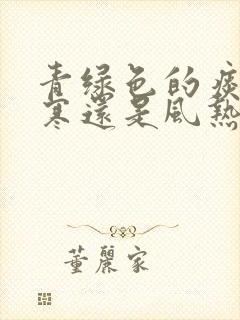 青綠色的痰
寒還是風熱
董麗家